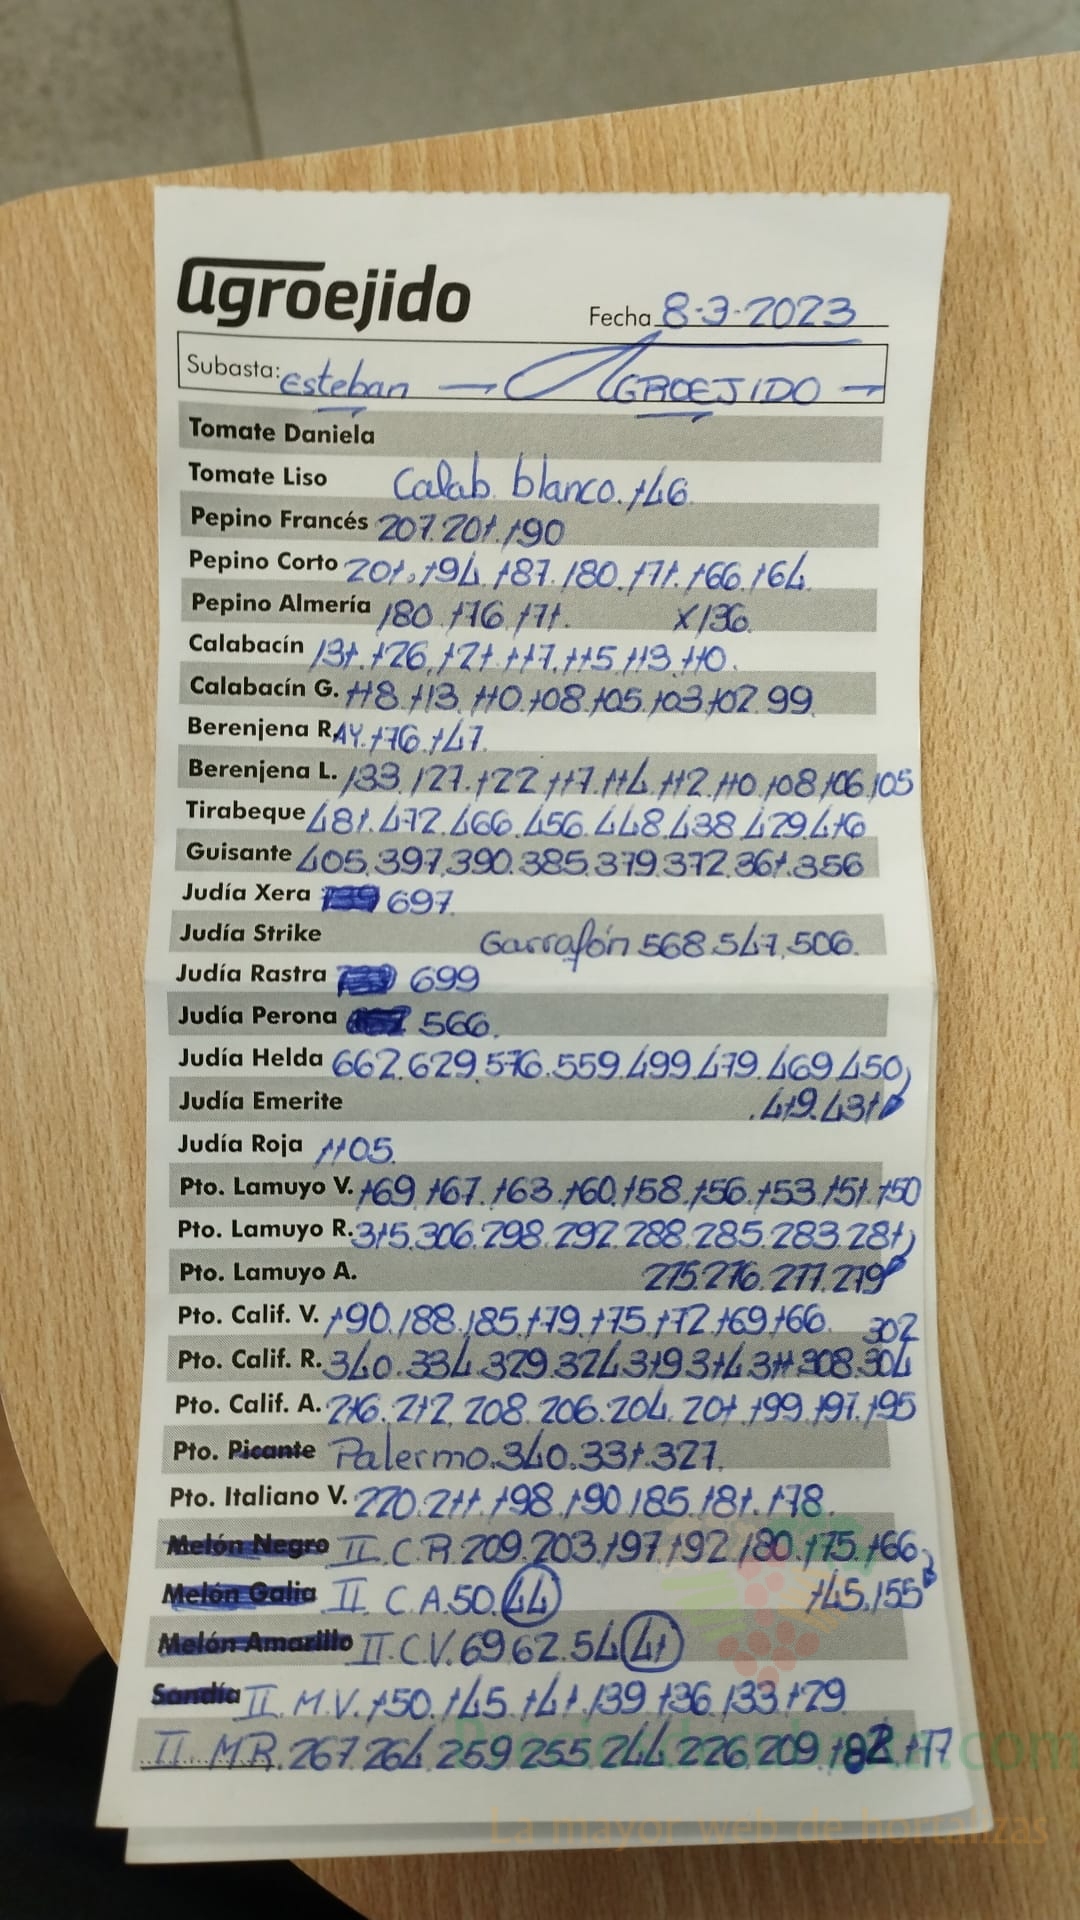 agroejido
Fecha 8-3-2023
Subasta: Esteban → AGROEJIDO →
Tomate Daniela
Tomate Liso Calab. blanco. 146
Pepino Francés 207. 201. 190
Pepino Corto 201. 194. 187. 180. 171. 166. 164.
Pepino Almería 180. 176. 171. X136.
Calabacín 131. 126. 121. 117. 115. 113. 110.
Calabacín G. 118. 113. 110. 108. 105. 103. 102. 99.
Berenjena RAY. 176. 147.
Berenjena L. 133. 127. 122. 117. 114. 112. 110. 108. 106. 105
Tirabeque 481. 472. 466. 456. 448. 438. 429. 416
Guisante 405. 397. 390. 385. 379. 372. 361. 356
Judía Xera 697.
Judía Strike Garrafón 568. 547. 506.
Judía Rastra 699
Judía Perona 566.
Judía Helda 662. 629. 576. 559. 499. 479. 469. 450
Judía Emerite .419. 431
Judía Roja 1105.
Pto. Lamuyo V. 169. 167. 163. 160. 158. 156. 153. 151. 150
Pto. Lamuyo R. 315. 306. 298. 292. 288. 285. 283. 281
Pto. Lamuyo A. 275. 276. 277. 279
Pto. Calif. V. 190. 188. 185. 179. 175. 172. 169. 166. 302
Pto. Calif. R. 340. 334. 329. 324. 319. 314. 311. 308. 304
Pto. Calif. A. 216. 212. 208. 206. 204. 201. 199. 197. 195
Pto. Picante Palermo. 340. 331. 327.
Pto. Italiano V. 220. 211. 198. 190. 185. 181. 178.
Melón Negro II. C.R. 209. 203. 197. 192. 180. 175. 166
Melón Galia II. C.A. 50. 44 145. 155
Melón Amarillo II. C.V. 69. 62. 54. 41
Sandía II. M.V. 150. 145. 141. 139. 136. 133. 129
II. MR. 267. 264. 259. 255. 244. 226. 209. 182. 177
La mayor web de hortalizas